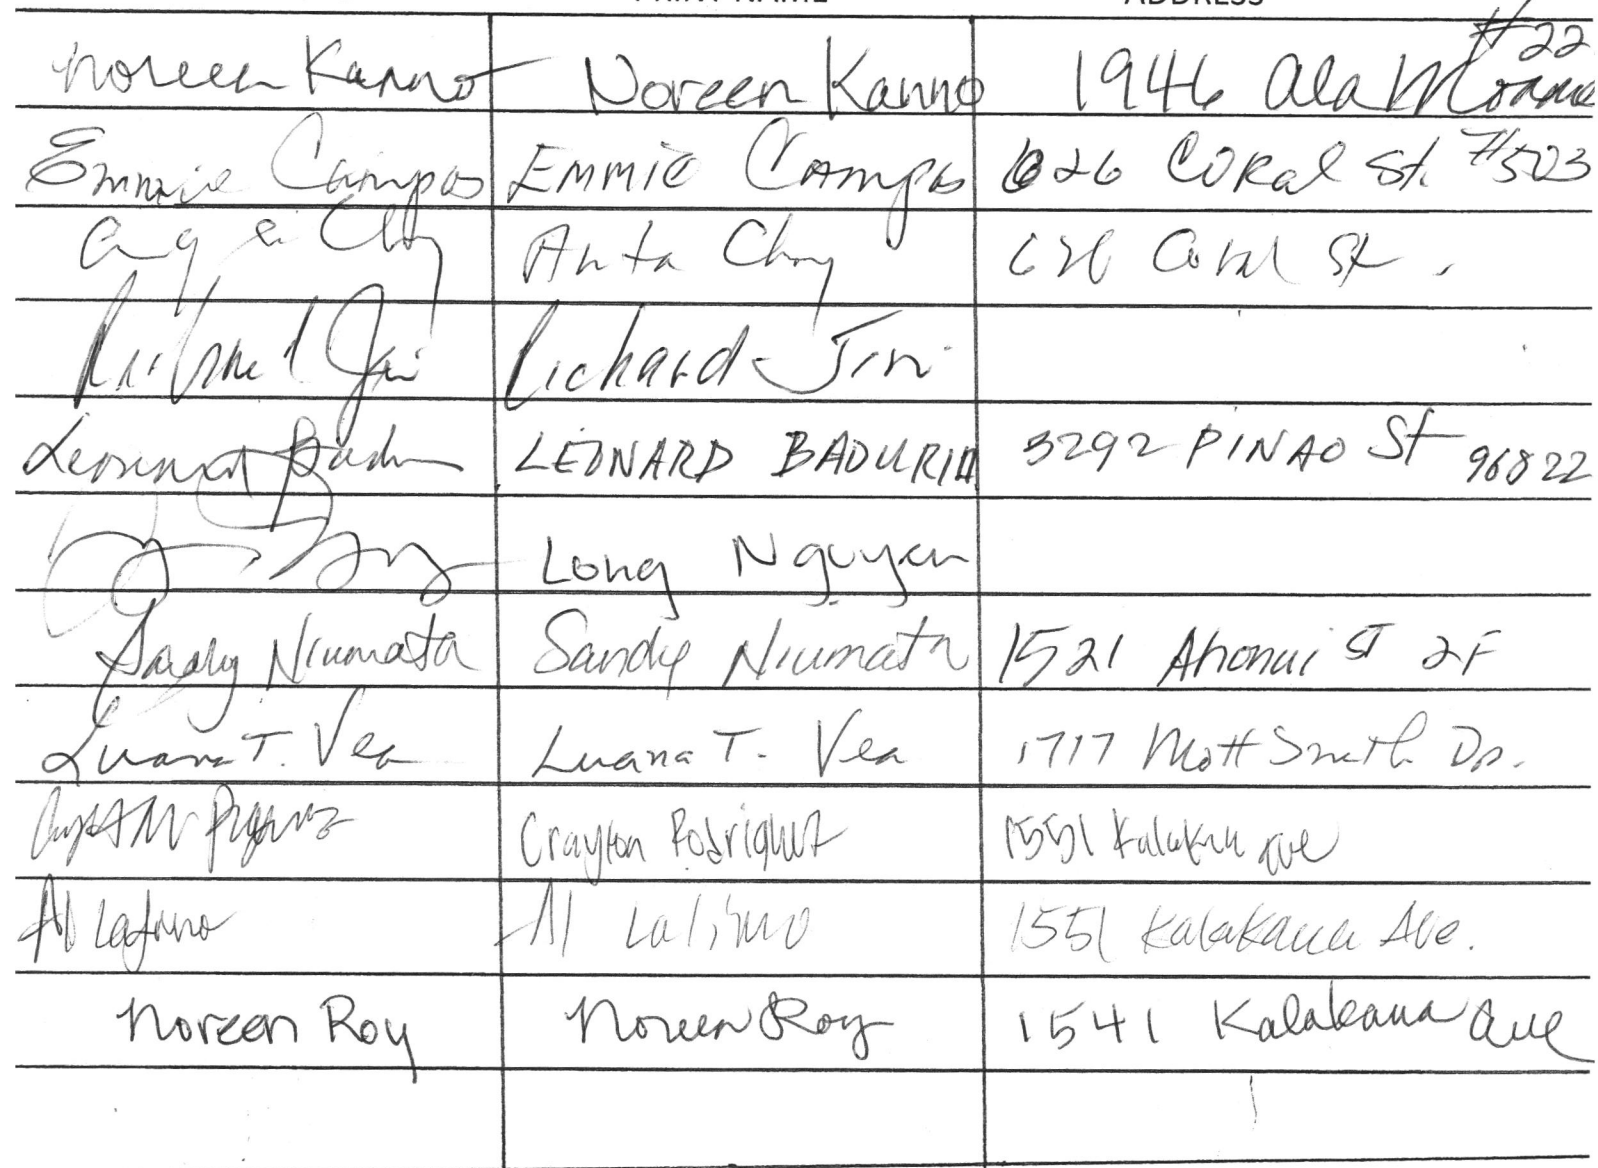 PRINT NAME ADDRESS
Noreen Kanno Noreen Kanno 1946 Ala Moana #22
Emmie Campos EMMIE CAMPOS 626 CORAL St. #503
Choy Anita Choy 626 Coral St.
Richard Jin Richard Jin
Leonard LEONARD BADURIA 3292 PINAO St 96822
Long Nguyen
Sandy Niumata Sandy Niumata 1521 Ahonui ST 2F
Luana T. Vea Luana T. Vea 1717 Mott Smith Dr.
Crayton Rodriguez 1551 Kalakaua ave
Al Al 1551 Kalakaua Ave.
Noreen Roy Noreen Roy 1541 Kalakaua Ave